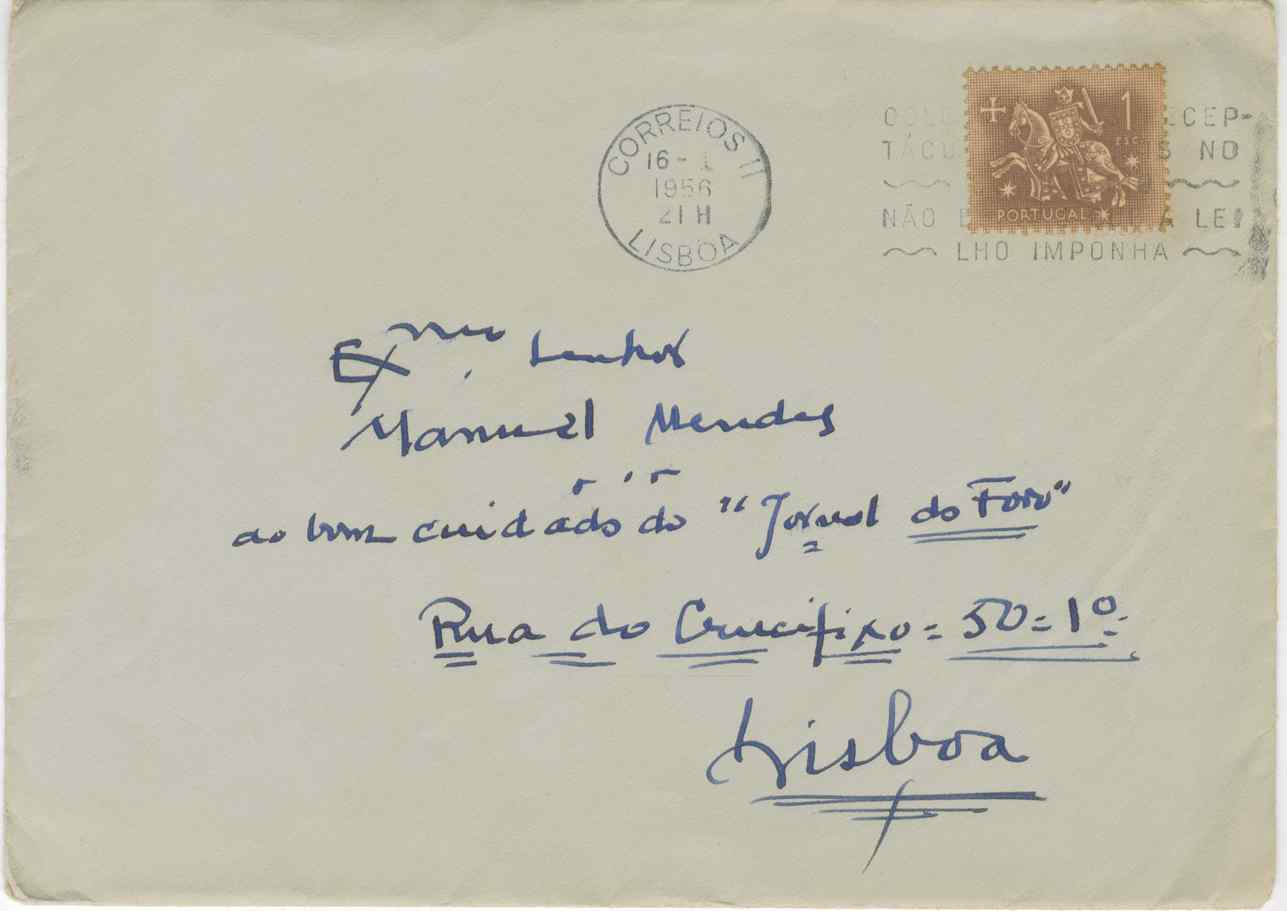 CORREIOS 11
16 - 1
1956
21 H
LISBOA
NO
NÃO A LEI
LHO IMPONHA
1
ESC.
PORTUGAL
Exmo Senhor
Manuel Mendes
ao bom cuidado do "Jornal do Foro"
Rua do Crucifixo = 50 = 1º
Lisboa